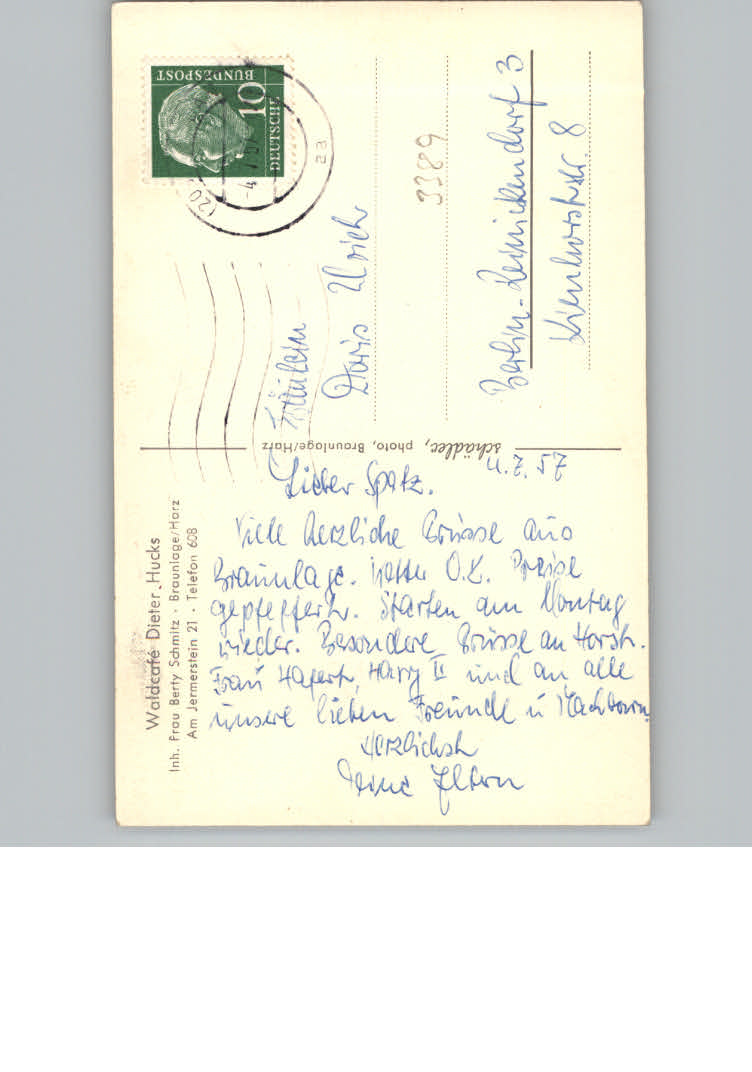 Waldcafé Dieter Hucks
Inh. Frau Berty Schmitz · Braunlage/Harz
Am Jermerstein 21 · Telefon 608
schädler, photo, Braunlage/Harz
DEUTSCHE
BUNDESPOST
10
(20
-4.7.57
aa
4.7.57
Lieber Spatz.
Viele herzliche Grüsse aus
Braunlage. Wetter O.K. Preise
gepfeffert. Starten am Montag
wieder. Besondere Grüsse an Horst.
Frau Harry II und an alle
unsere lieben Freunde u Nachbarn.
Herzlichst
Deine Eltern
Fräulein
Doris
3389
Berlin-Reinickendorf 3
Kienhorststr. 8